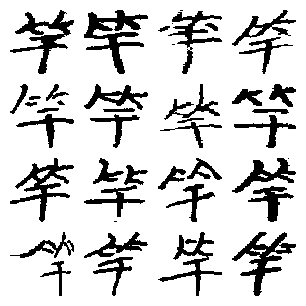 竿竿竿竿
竿竿竿竿
竿竿竿竿
竿竿竿竿